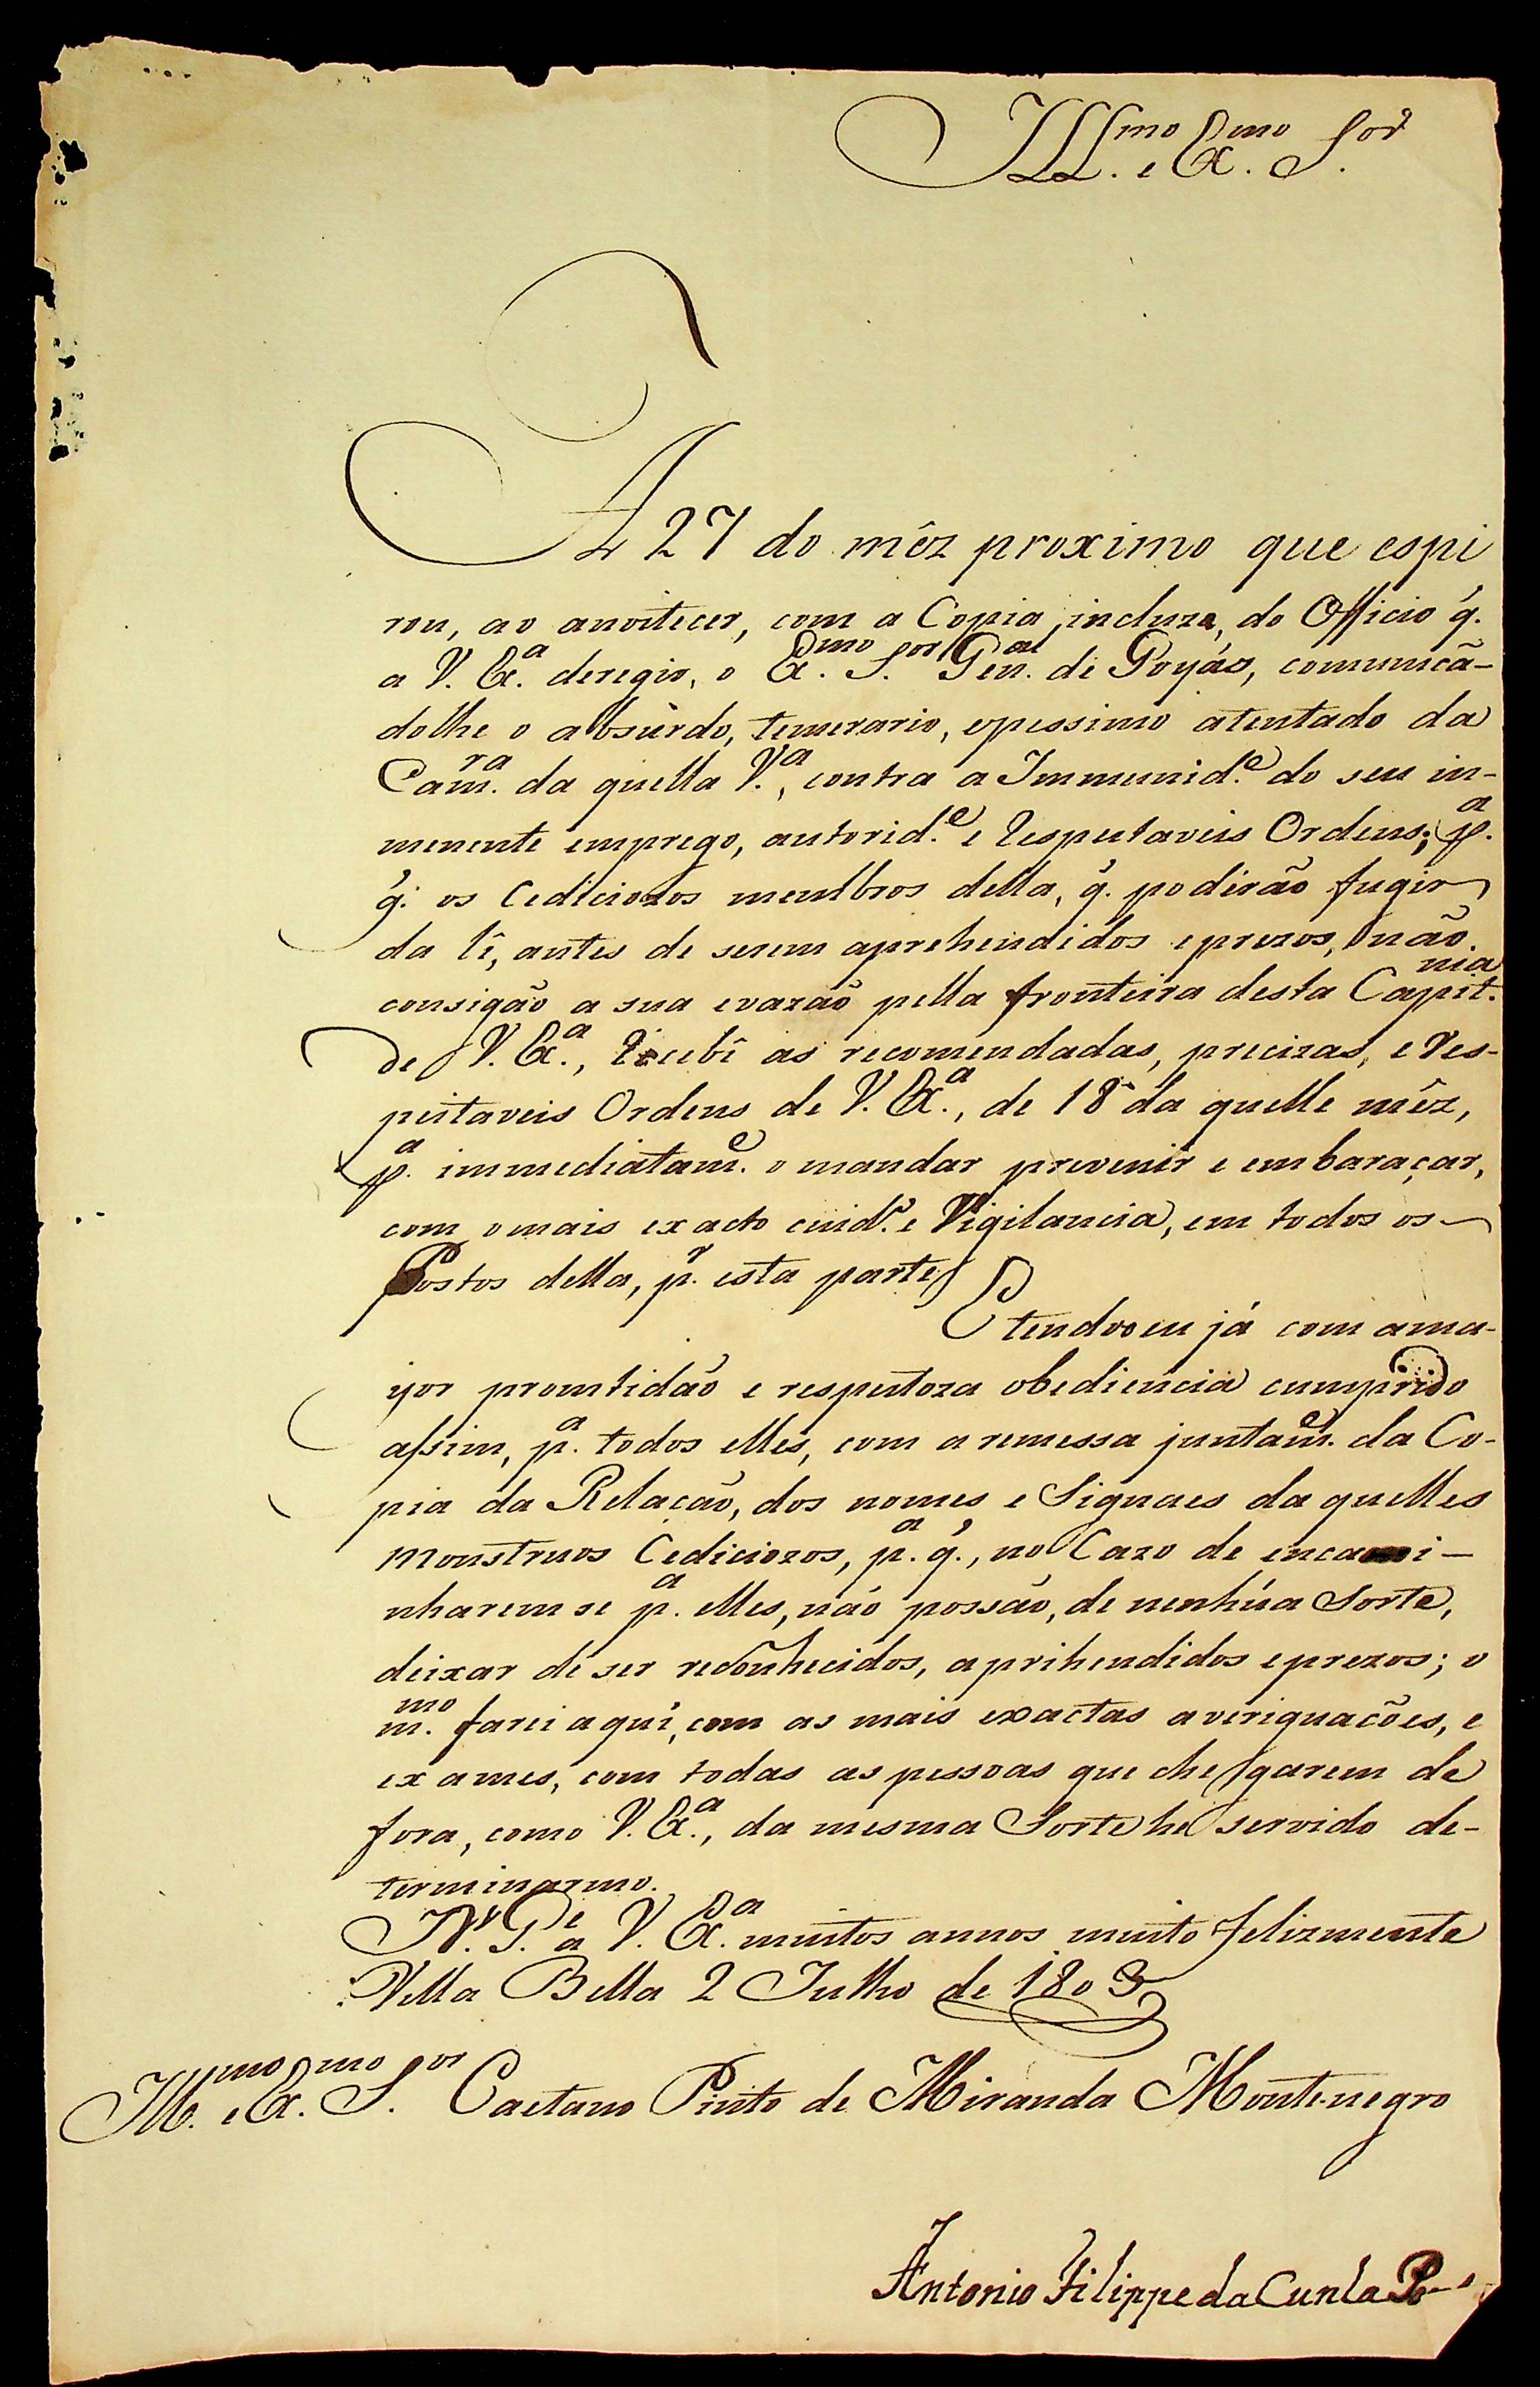 Ill.mo e Ex.mo S.or
A 27 do mêz proximo que espi
rou, ao anoitecer, com a Copia, incluza, do Officio q̃.
a V. Ex.a deregio, o Ex.mo S.or Gen.al di Goyás, comunicã-
dolhe o absurdo, temerario, epessimo atentado da
Cam.ra da quella V.a, contra a Immunid.e do seu in-
menente emprego, autorid.e e Respeitaveis Ordens; p.a
q̃. os Cediciozos membros della, q̃. podirão fugir
da lî, antes de serem aprehendidos eprezos, não
consigão a sua evazão pella fronteira desta Capit.nia
de V. Ex.a, Recebî as recomendadas, precizas, e Res-
peitaveis Ordens de V. Ex.a, de 18 da quelle mêz,
p.a immediatam.e o mandar prevenir e embaraçar,
com omais exacto cuid.o e Vigilancia, em todos os
Postos della, p.r esta parte
E tendooeu já com ama-
yor promtidão e respeitoza obediencia cumprido
assim, p.a todos elles, com a remessa juntam.e da Co-
pia da Relacão, dos nomes e Signaes da quelles
monstruos Cediciozos, p.a q̃., no Cazo de encami-
nharem se p.a elles, não possão, de nenhũa Sorte,
deixar de ser reconhecidos, aprihendidos eprezos; o
m.mo farei aquî, com as mais exactas averiguacões, e
exames, com todas as pessoas que chegarem de
fora, como V. Ex.a, da mesma Sorte he servido de-
terminarmo.
N. S. G.e a V. Ex.a muitos annos muito felizmente
Villa Bella 2 Julho de 1803
Ill.mo e Ex.mo S.or Caetano Pinto de Miranda Montenegro
Antonio Filippe da Cunha P